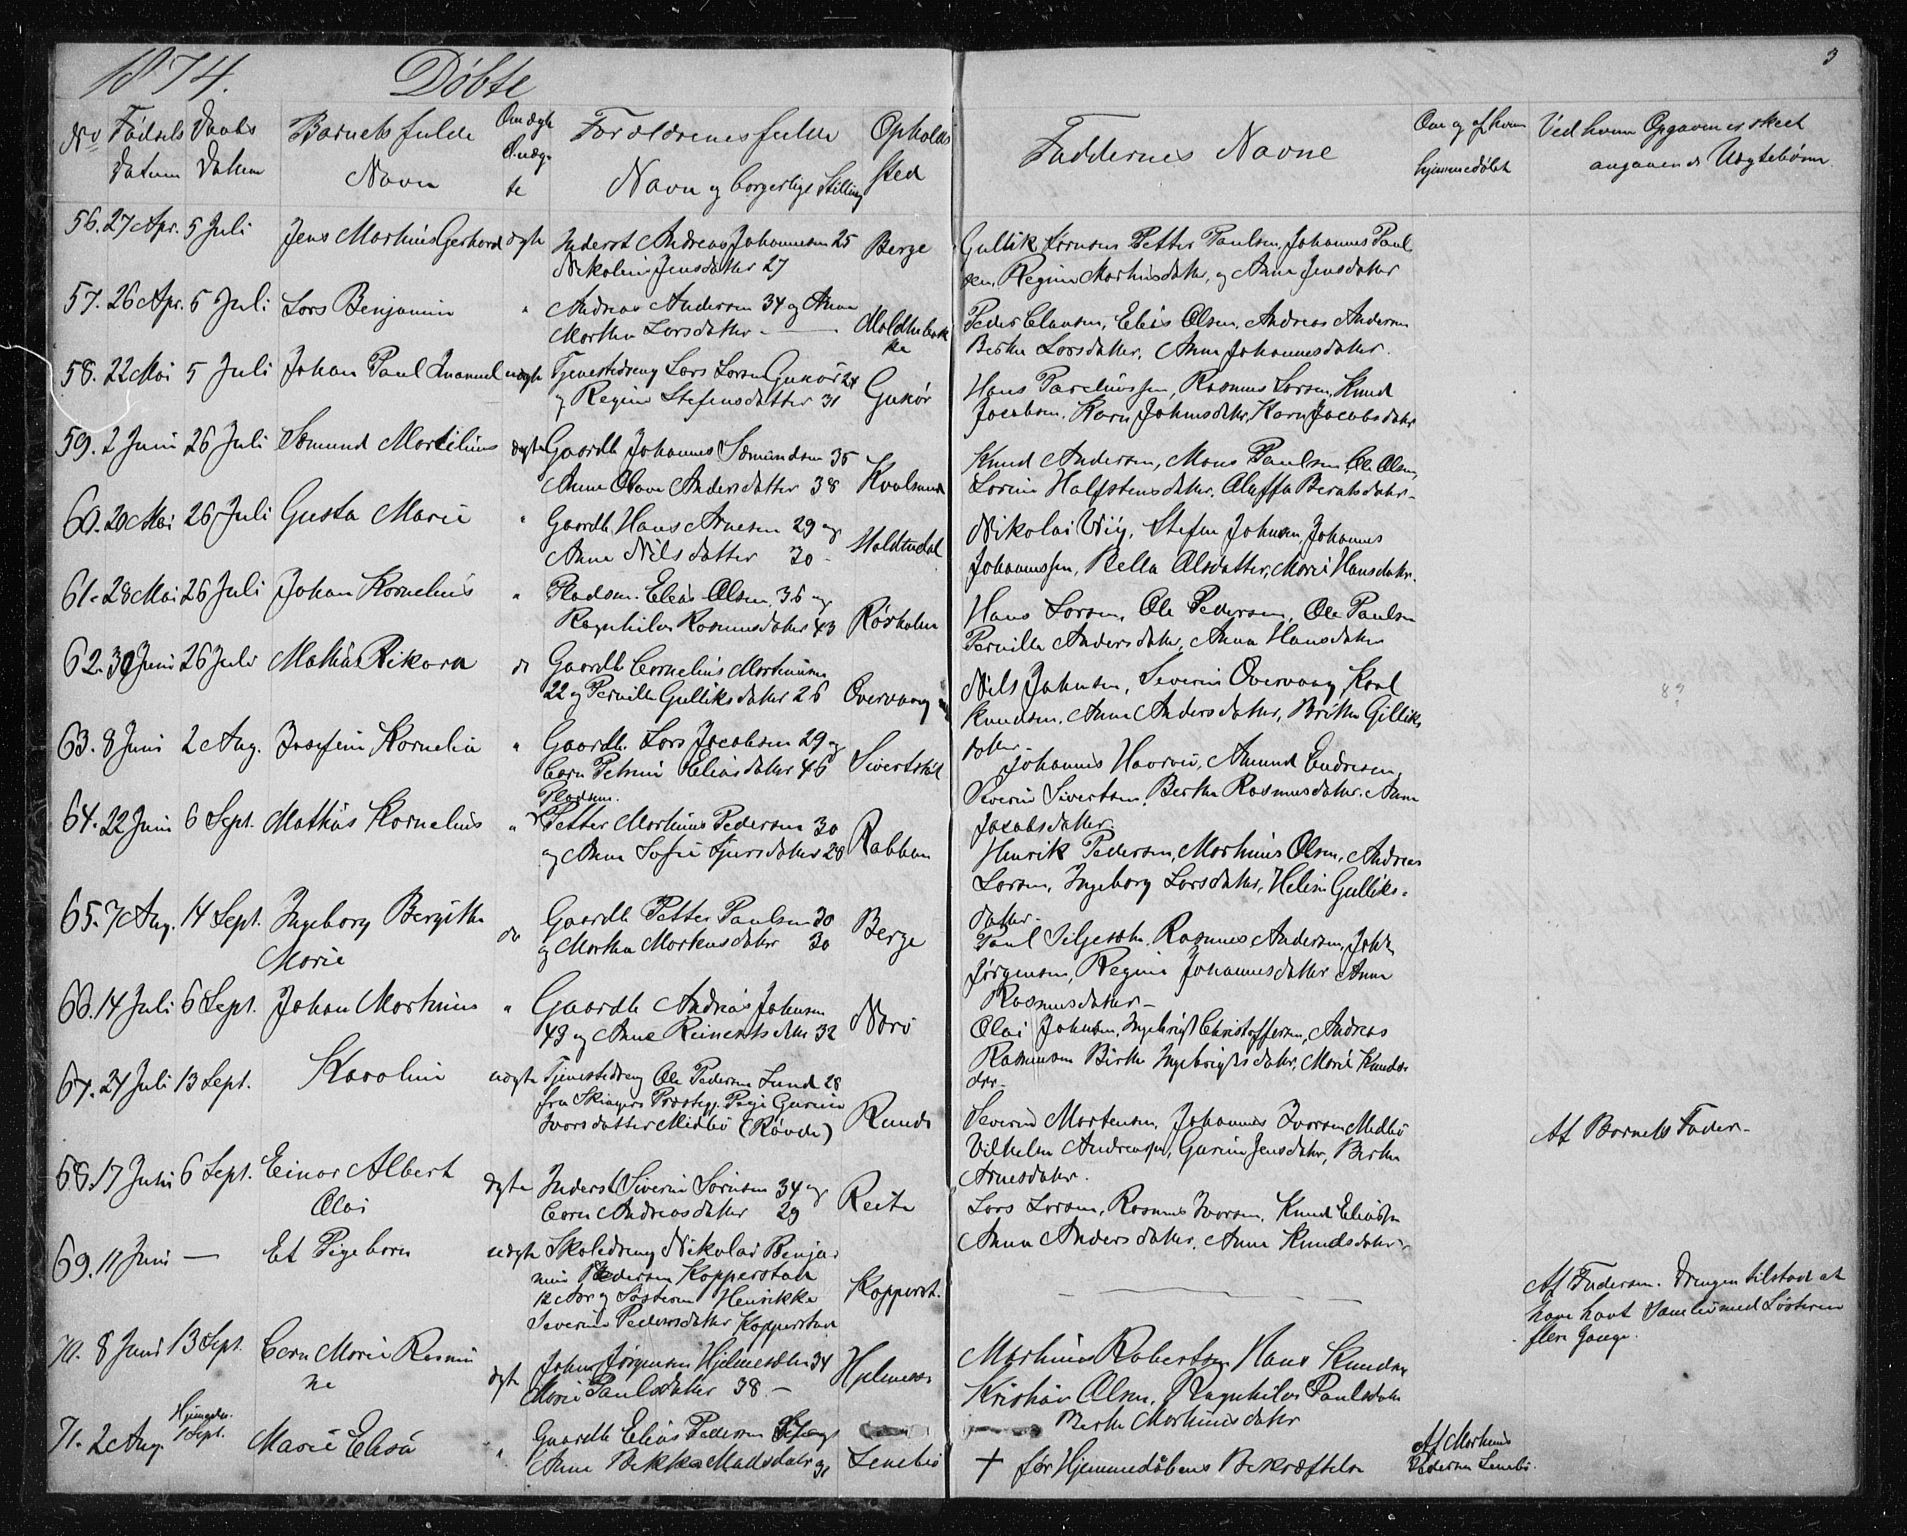 1874. Döbte
3
No Födsels Datum
Daabs Datum
Barnets fulde Navn
Om ægte el. uægte
Forældrenes fulde Navn og borgerlige Stilling
Opholds Sted
Faddernes Navne
Om og af hvem hjemmedöbt
Ved hvem Opgaven er skeet angaaende Uægtebörn
56. 27 Apr. 5 Juli Jens Martinus Gerhard ægte Inderst Andreas Johannesen 25 Berge
Nikoline Jensdatter 27
Gullik Larsen Petter Paulsen, Johannes Paul
sen, Regine Martinusdatter, og Anne Jensdatter
57. 26 Apr. 5 Juli Lars Benjamin " Andreas Andersen 34 og Anne
Martha Larsdatter - Moldtubak
ke
Peder Clausen, Elias Olsen, Andreas Andersen
Berthe Larsdatter, Anne Johannesdatter.
58. 22 Mai 5 Juli Johan Paul Imanuel uægte Tjenestedreng Lars Larsen Gurskö 24
og Regine Steffensdatter 31 Gurskö
Hans Rasmus Larsen, Knud
Jacobsen, Karn Johnsdatter, Karn Jacobsdatter
59. 2 Juni 26 Juli Sæmund Martilius ægte Gaardb. Johannes Sæmundsen 35
Anne Olave Andersdatter 38 Kvalsund
Knud Andersen, Mons Paulsen Ole Olsen,
Lorine Halfstensdatter, Oluffa Berntsdatter -
60. 20 Mai 26 Juli Gusta Marie " Gaardb. Hans Arnesen 29 og
Anne Nilsdatter 30 - Moldtudal
Nikolai Wiig, Steffen Johnsen, Johannes
Johannessen, Bella Olsdatter, Marie Hansdatter.
61. 28 Mai 26 Juli Johan Kornelius " Pladsm. Elias Olsen 36 og
Ragnhilde Rasmusdatter 43 Rösholm
Hans Larsen, Ole Pedersen, Ole Paulsen
Pernille Andersdatter, Anna Hansdatter
62. 30 Juni 26 Juli Mathias Rikard do Gaardb. Cornelius Martinussen
22 og Pernille Gulliksdatter 26 Overvaag
Nils Johnsen, Severin Overvaag, Karl
Knudsen, Anne Andersdatter, Brithe Gulliks
datter -
63. 8 Juni 2 Aug. Josefine Kornelia " Gaardb. Lars Jacobsen 29 og
Carn Petrine Eliasdatter 46
Johannes Haavei, Amund Endresen
Severin Sivertsen, Berthe Rasmusdatter, Anne
Jacobsdatter.
64. 22 Juni 6 Sept. Mathias Kornelius " Pladsm.
Petter Martinus Pedersen 30
og Anne Sofie 28 Rabben
Henrik Pedersen, Martinus Olsen, Andreas
Larsen, Ingeborg Larsdatter, Heline Gulliks-
datter -
65. 7 Aug. 14 Sept. Ingeborg Bergitha
Marie do Gaardb. Petter Paulsen 30
og Martha Martensdatter 30 Berge
Paul Rasmus Andersen, John
Jörgensen, Regine Johannesdatter Anne
Rasmusdatter -
66. 14 Juli 6 Sept. Johan Martinus " Gaardb. Andreas Johnsen
43 og Anne Reinertsdatter 32 Nærö
Olai Johnsen, Ingebrigt Christoffersen, Andreas
Rasmussen Birthe Ingebrigtsdatter, Marie Knuds
dtr -
67. 24 Juli 13 Sept. Karoline uægte Tjenestedreng Ole Pedersen Lund 28
fra Præstegj. Pige Gurine
Ivarsdatter Midbö (Rövde) Runde
Severin Mortensen, Johannes Ivarsen Medbö
Vilhelm Andreassen, Gurine Jensdatter, Berthe
Arnesdatter.
Af Barnets Fader -
68. 17 Juni 6 Sept. Einar Albert
Olai ægte Inderst Siverin Sörensen 34 og
Carn Andreasdatter 29 Reite
Lars Larsen, Rasmus Ivarsen, Knud Eliassen
Anne Andersdatter, Anne Knudsdatter
69. 11 Juni — Et Pigebarn uægte Skoledreng Nikolai Benja
min Pedersen Kopperstad
12 Aar og Sösteren Henrikke
Severine Pedersdatter Kopperstad Kopperst.
Af Faderen. Drengen tilstod at
have havt Samleie med Sösteren
flere Gange.
70. 8 Juni 13 Sept. Carn Marie Rasmi
ne ægte Johan Jörgensen Hjelmesæter 34
Marie Paulsdatter 38 - Hjelmesæ
Martinus Robertsen, Hans Knudsen
Kristian Olsen, Ragnhilde Paulsdatter
Berthe Martinusdatter
71. 2 Aug. Hjemmedöbt
1 Sept. Marie Elisa " Gaardb. Elias Pedersen og
Anne Bekka Madsdatter 31 Leneböe
† för Hjemmedåbens Bekræftelse
Af Martinus
Pedersen Lenebö.